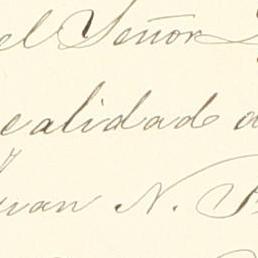 el Señor
ealidad a
uan N.